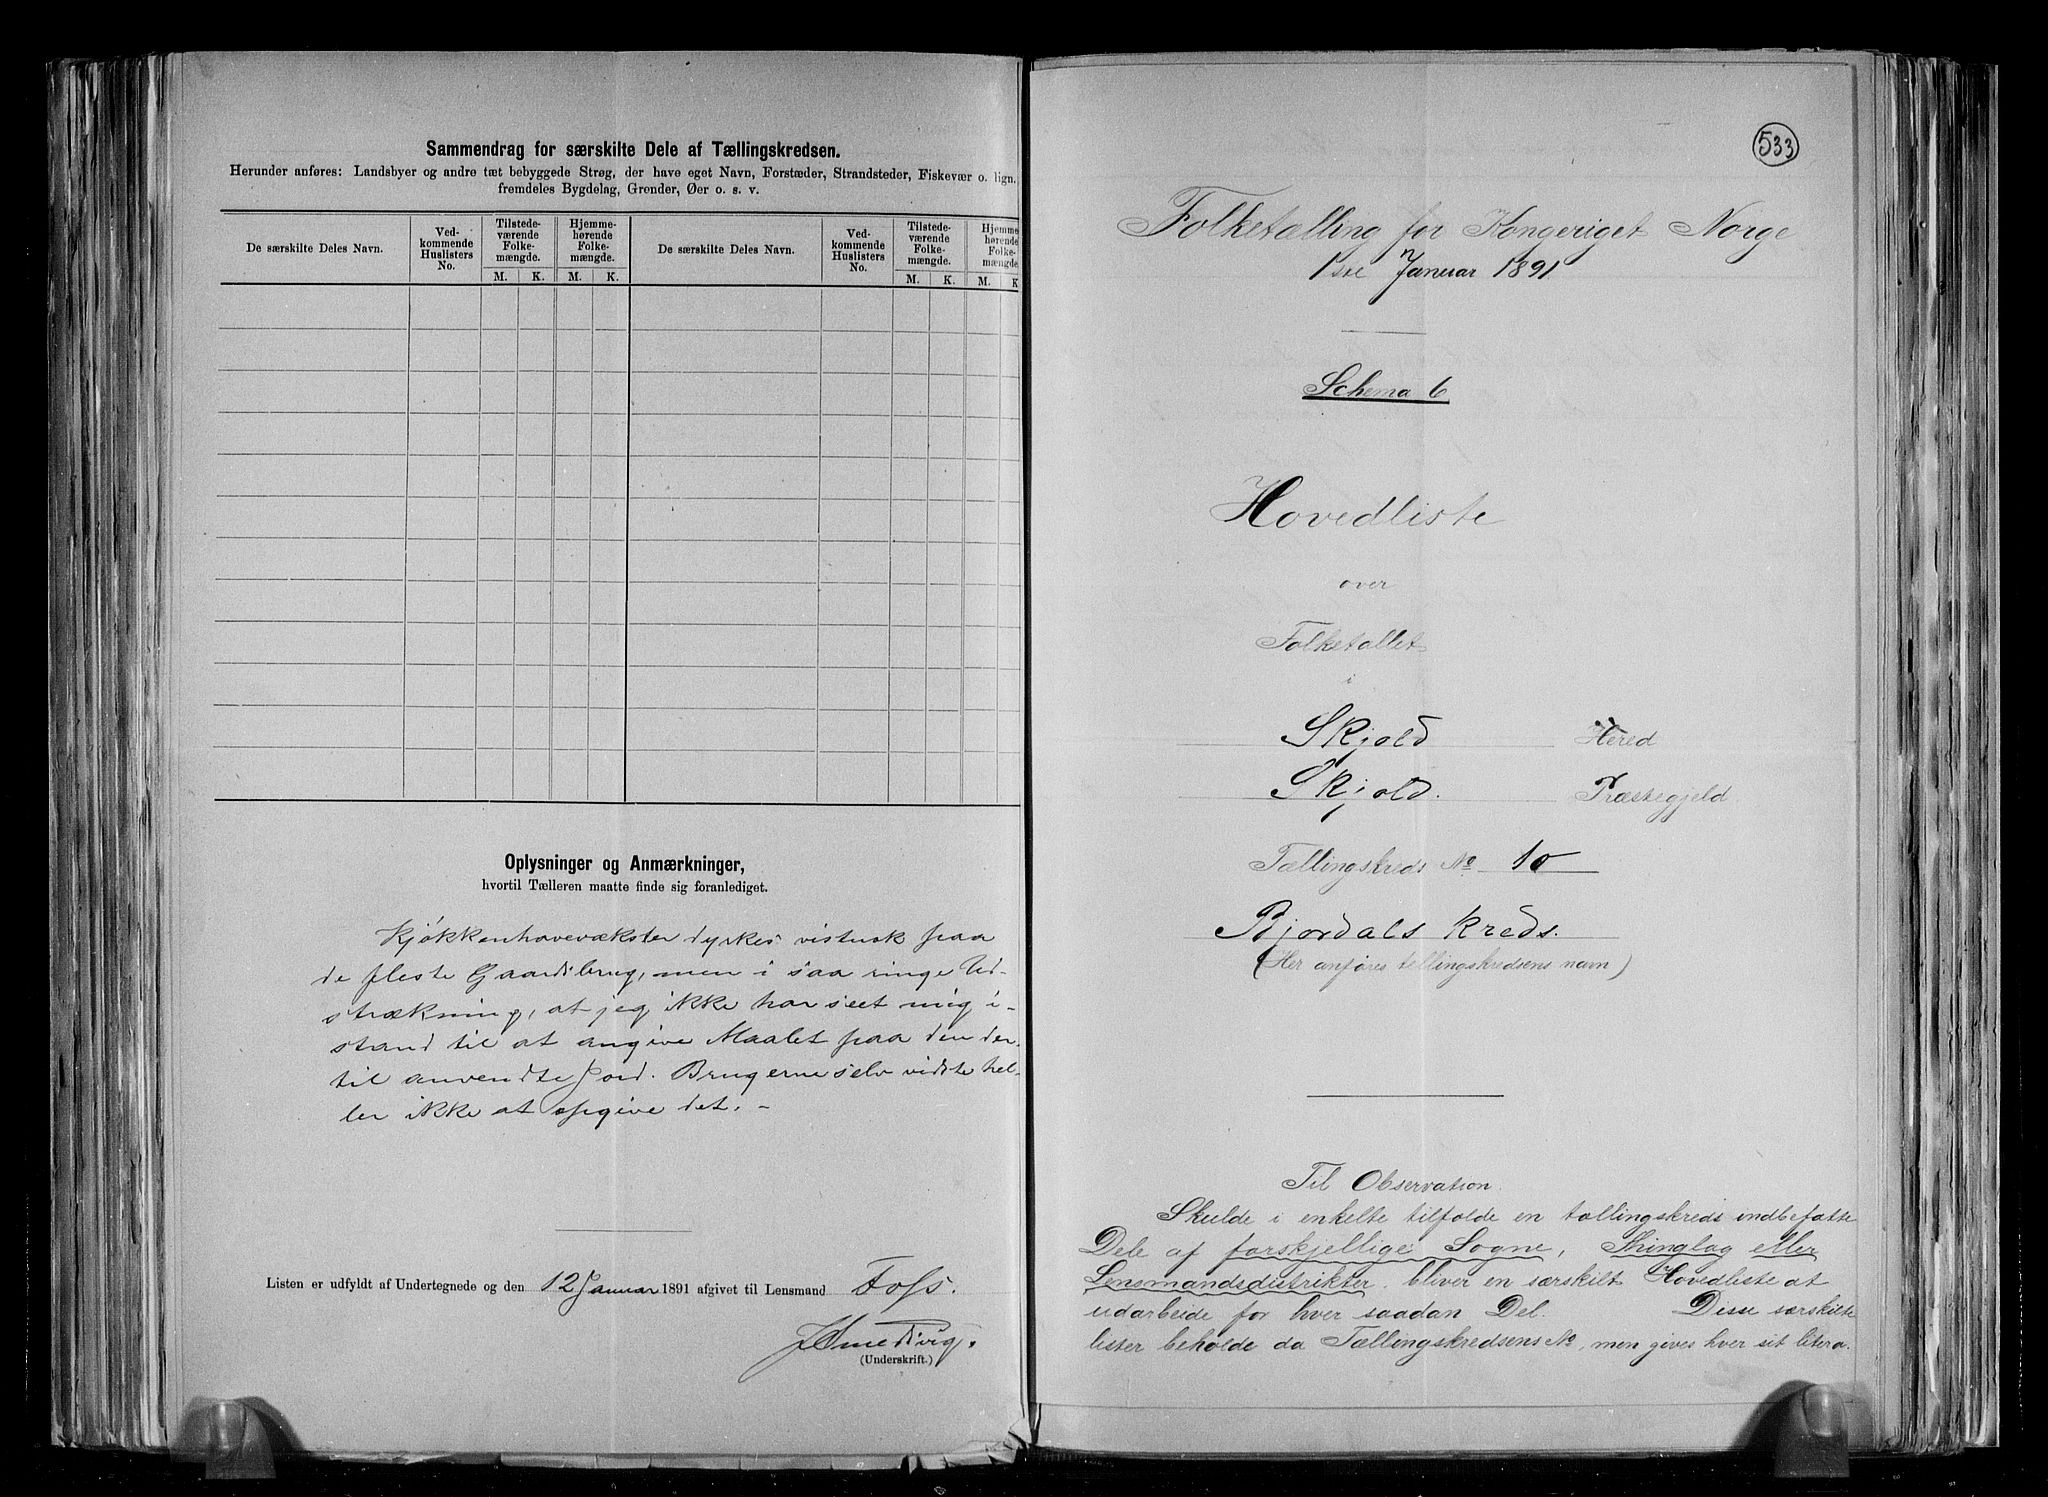 Sammendrag for særskilte Dele af Tællingskredsen.
Herunder anføres: Landsbyer og andre tæt bebyggede Strøg, der have eget Navn, Forstæder, Strandsteder, Fiskevær o. lign.
fremdeles Bygdelag, Grender, Øer o. s. v.
De særskilte Deles Navn.
Ved-
kommende
Huslisters
No.
Tilstede-
værende
Folke-
mængde.
Hjemme-
hørende
Folke-
mængde.
De særskilte Deles Navn.
Ved-
kommende
Huslisters
No.
Tilstede-
værende
Folke-
mængde.
Hjemme-
hørende
Folke-
mængde
M. K. M. K. M. K. M. K
Oplysninger og Anmærkninger,
hvortil Tælleren maatte finde sig foranlediget.
Kjøkkenhavevækster dyrkes vistnok paa
de fleste Gaardsbrug, men i saa ringe Ud-
strækning, at jeg ikke har seet mig i-
stand til at angive Maalet paa den der-
til anvendte Jord. Brugerne selv vidste hel-
ler ikke at opgive det. -
Listen er udfyldt af Undertegnede og den 12 Januar 1891 afgivet til Lensmand Foss.
Smedvig.
(Underskrift.)
533
Folketælling for Kongeriget Norge
1ste Januar 1891
Schema 6
Hovedliste
over
Folketallet
i
Skjold Hered
Skjold. Præstegjeld
Tællingskreds No 10
Bjordals Kreds.
(Her anføres tellingskredsens navn)
Til Observation.
Skulde i enkelte tilfælde en tællingskreds indbefatte
Dele af forskjellige Sogne, Thinglag eller
Lensmandsdistrikter, bliver en særskilt Hovedliste at
udarbeide for hver saadan Del. Disse særskilte
lister beholde da Tællingskredsens No, men gives hver sit litera.